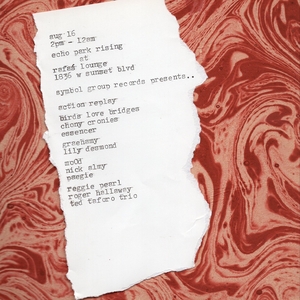 aug 16
2pm - 12am
echo park rising
at
rafas lounge
1836 w sunset blvd
symbol group records presents..
action replay
birds love bridges
chony cronies
essencer
graehamy
lily desmond
moof
nick almy
peegie
reggie pearl
roger hallaway
ted taforo trio